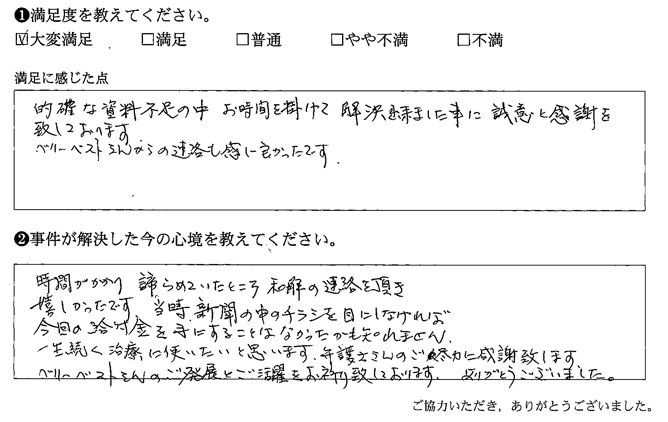 ❶満足度を教えてください。
☑大変満足 □満足 □普通 □やや不満 □不満
満足に感じた点
的確な資料不足の中 お時間を掛けて 解決出来ました事に 誠意と感謝を
致しております
ベリーベストさんからの連絡も感じ良かったです.
❷事件が解決した今の心境を教えてください。
時間がかかり 諦らめていたところ 和解の連絡を頂き
嬉しかったです. 当時. 新聞の中のチラシを目にしなければ
今回の給付金を手にすることはなかったかも知れません.
一生続く治療に使いたいと思います. 弁護士さんのご尽力に感謝致します
ベリーベストさんのご発展とご活躍をお祈り致しております. ありがとうございました。
ご協力いただき，ありがとうございました。